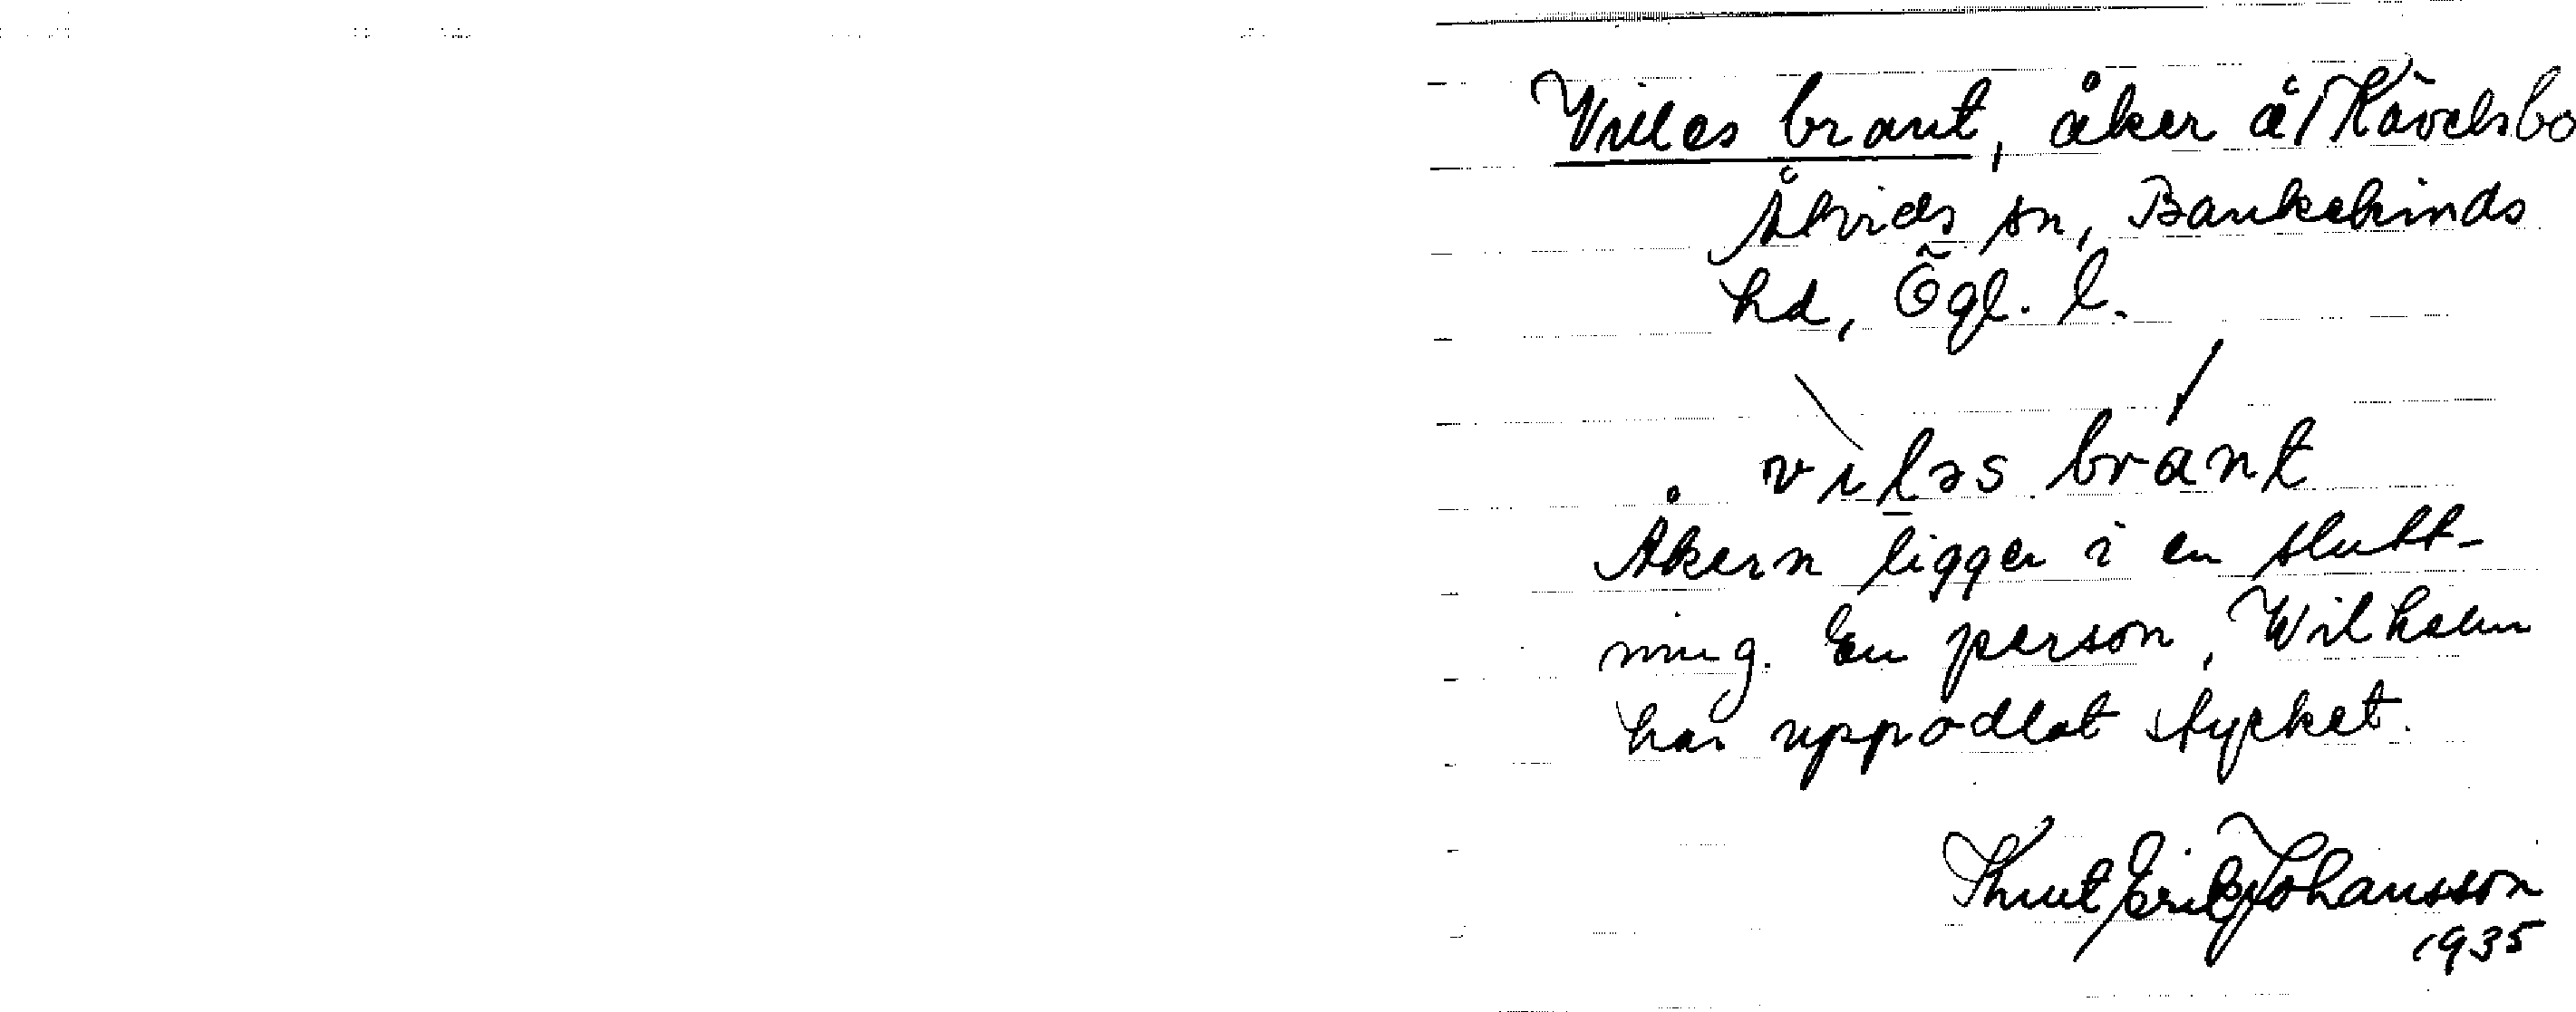 Villes brant, åker å Hävelsbo
Åtvids sn, Bankekinds
hd, Ögl. l.
vıləs brant
Åkern ligger i en slutt-
ning. En person, Wilhelm
har uppodlat stycket.
Knut Erik Johansson
1935